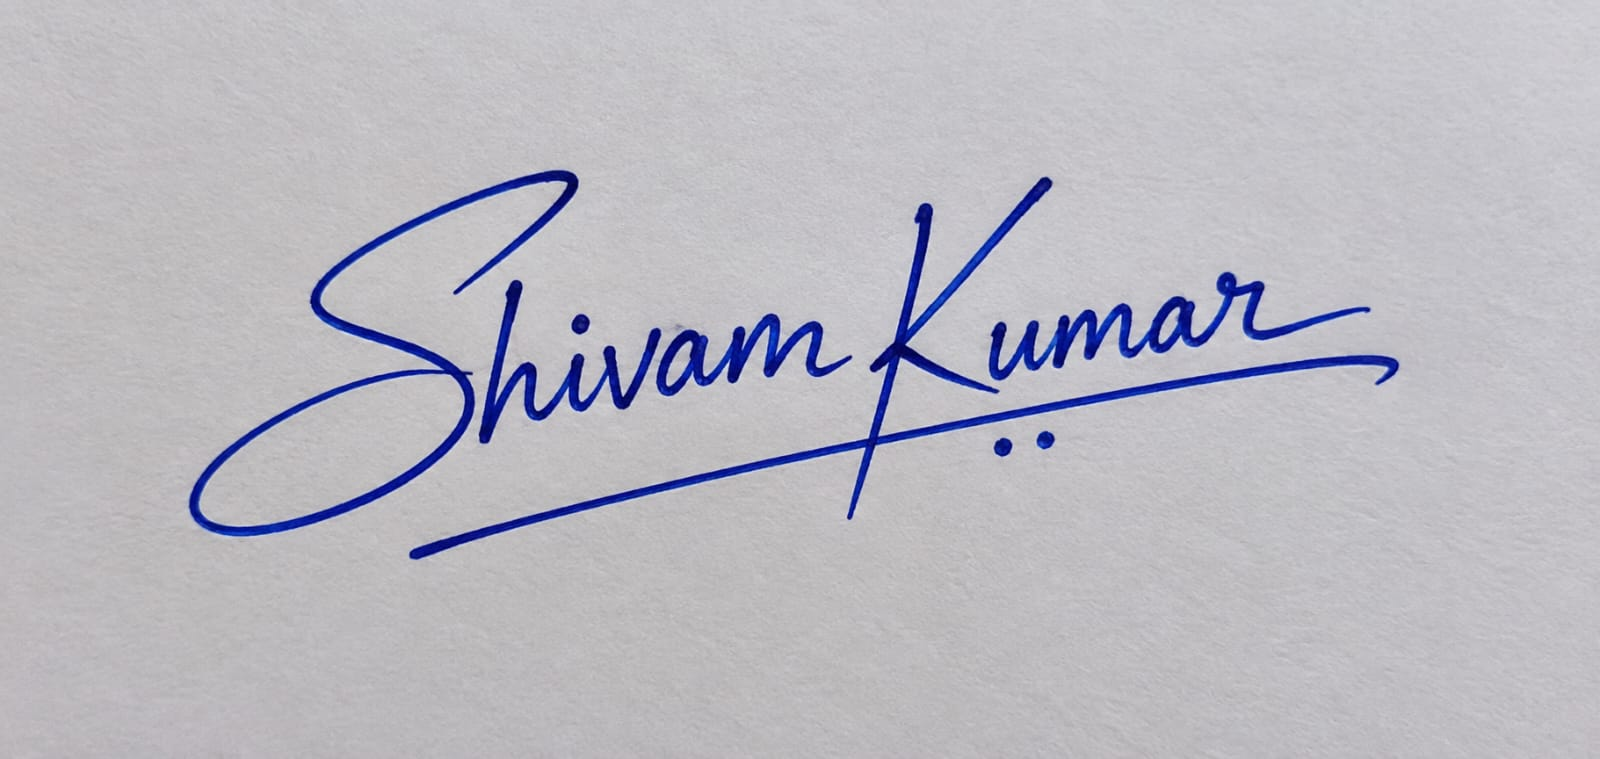 Shivam Kumar